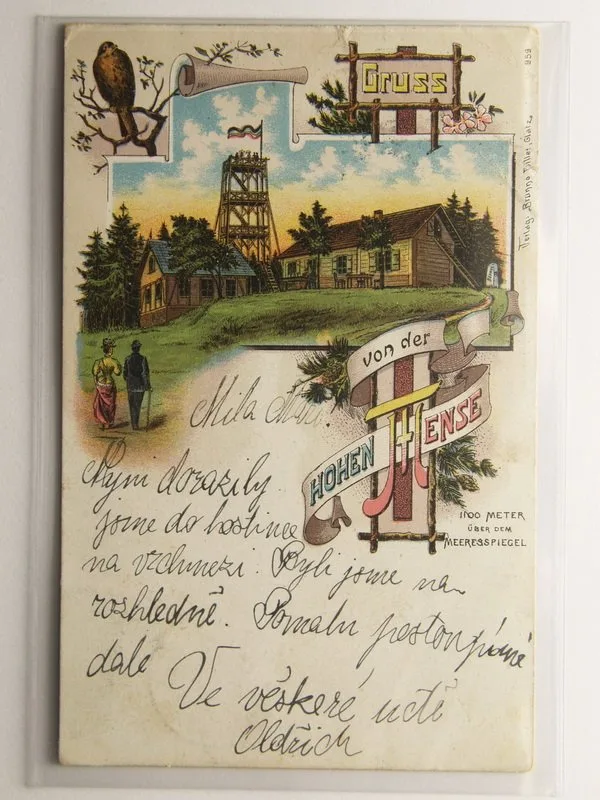 Gruss
959
Verlag: Bruno Tiller, Glatz.
von der
HOHEN MENSE
1100 METER
ÜBER DEM
MEERESSPIEGEL
Milá
dorazily
jsme do hostince
na vrchmezi. Byli jsme na
rozhledně. Pomalu postoupíme
dále
Ve věškeré úctě
Oldřich